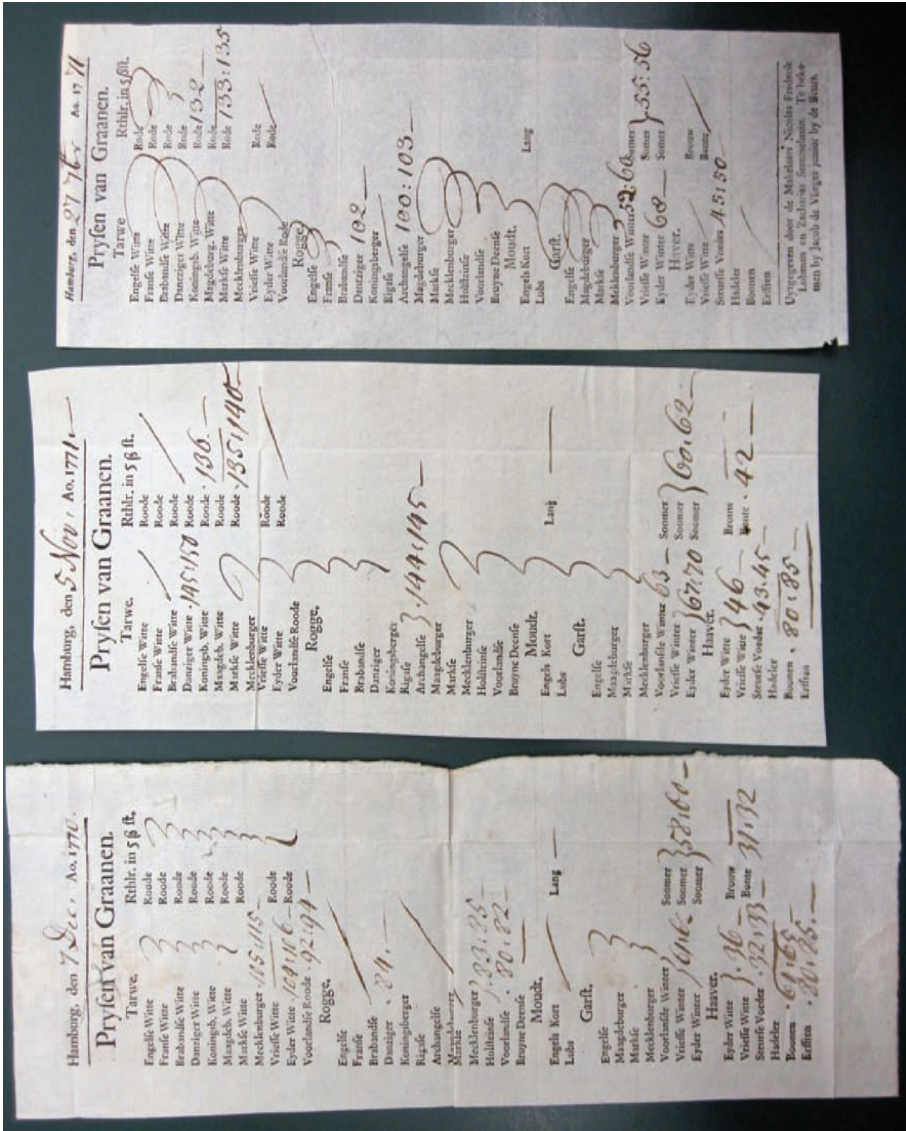 Hamburg, den 7 Dec. Ao. 1770.
Pryſen van Graanen.
Tarwe. Rthlr. in 5 ß ſt.
Engelſe Witte Roode
Franſe Witte Roode
Brabandſe Witte Roode
Danziger Witte Roode
Koningb. Witte Roode
Maagdeb. Witte Roode
Markſe Witte Roode
Mecklenburger 105:115 —
Vrieſſe Witte Roode
Eyder Witte 104:106 — Roode
Voorlandſe Roode 92:94 —
Rogge,
Engelſe
Franſe
Brabandſe
Danziger 84. —
Koningsberger
Rigaſe
Archangelſe
Maagdeburger
Markſe
Mecklenburger 83:85 —
Holſteinſe
Voorlandſe 80:82 —
Bruyne Deenſe
Moudt.
Engels Kort Lang —
Lubs
Garſt.
Engelſe
Maagdeburger
Markſe
Mecklenburger
Voorlandſe Winter Soomer
Vrieſſe Winter Soomer 58:60 —
Eyder Winter Soomer
Haaver.
Eyder Witte 36 — Brouw —
Vrieſſe Witte Bunte 31:32
Steurſe Voeder 32:33 —
Hadeler
Boonen
Erſſten
Hamburg, den 5 Nov. Ao. 1771. —
Pryſen van Graanen.
Tarwe. Rthlr. in 5 ß ſt.
Engelſe Witte Roode
Franſe Witte Roode
Brabandſe Witte Roode
Danziger Witte 145:150 Roode
Koningb. Witte Roode 136. —
Maagdeb. Witte Roode
Markſe Witte Roode 135:140 —
Mecklenburger
Vrieſſe Witte Roode
Eyder Witte Roode
Voorlandſe Roode
Rogge,
Engelſe
Franſe
Brabandſe
Danziger
Koningsberger
Rigaſe
Archangelſe 144:145 —
Maagdeburger
Markſe
Mecklenburger
Holſteinſe
Voorlandſe
Bruyne Deenſe
Moudt.
Engels Kort Lang —
Lubs
Garſt.
Engelſe
Maagdeburger
Markſe
Mecklenburger
Voorlandſe Winter 63 — Soomer
Vrieſſe Winter Soomer 60:62 —
Eyder Winter 67:70 Soomer
Haaver.
Eyder Witte Brouw —
Vrieſſe Witte 46 — Bunte 42 —
Steurſe Voeder 43:45 —
Hadeler
Boonen 80:85 —
Erſſten
Hamburg, den 27 7br Ao. 1771
Pryſen van Graanen.
Tarwe Rthlr. in 5 ßſt.
Engelſe Witte Rode
Franſe Witte Rode
Brabandſe Witte Rode
Danziger Witte Rode
Koningb. Witte Rode 132 —
Magdeburg. Witte Rode
Markſe Witte Rode 133:135
Mecklenburger
Vrieſſe Witte Rode
Eyder Witte Rode
Voorlandſe Rode
Rogge
Engelſe
Franſe
Brabandſe
Dantziger 102 —
Koningsberger
Rigaſe
Archangelſe 100:103 —
Magdeburger
Markſe
Mecklenburger
Holſteinſe
Voorlandſe
Bruyne Deenſe
Moudt.
Engels Kort Lang
Lubs
Garſt.
Engelſe
Magdeburger
Markſe
Meklenburger
Voorlandſe Winter 52:60 Somer
Vrieſſe Winter Somer 55:56
Eyder Winter 68 — Somer
Haver.
Eyder Witte Brouw
Vrieſſe Witte Bonte
Steurſe Voeder 45:50 —
Hadeler
Boonen
Erſſten
Uytgegeven door de Makelaers Nicolas Fredrik
Lohman en Zacharias Semmelmann. Te beko-
men by Jacob de Vlieger junior by de Beurs.